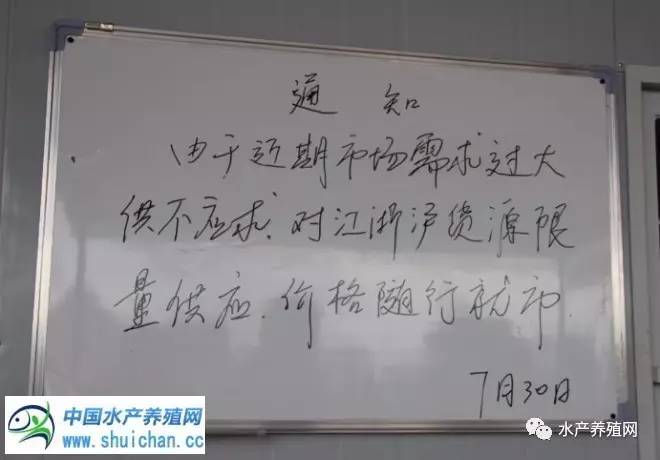 通 知
由于近期市场需求过大
供不应求.对江浙沪货源限
量供应.价格随行就市.
7月30日
中国水产养殖网
www.shuichan.cc
水产养殖网